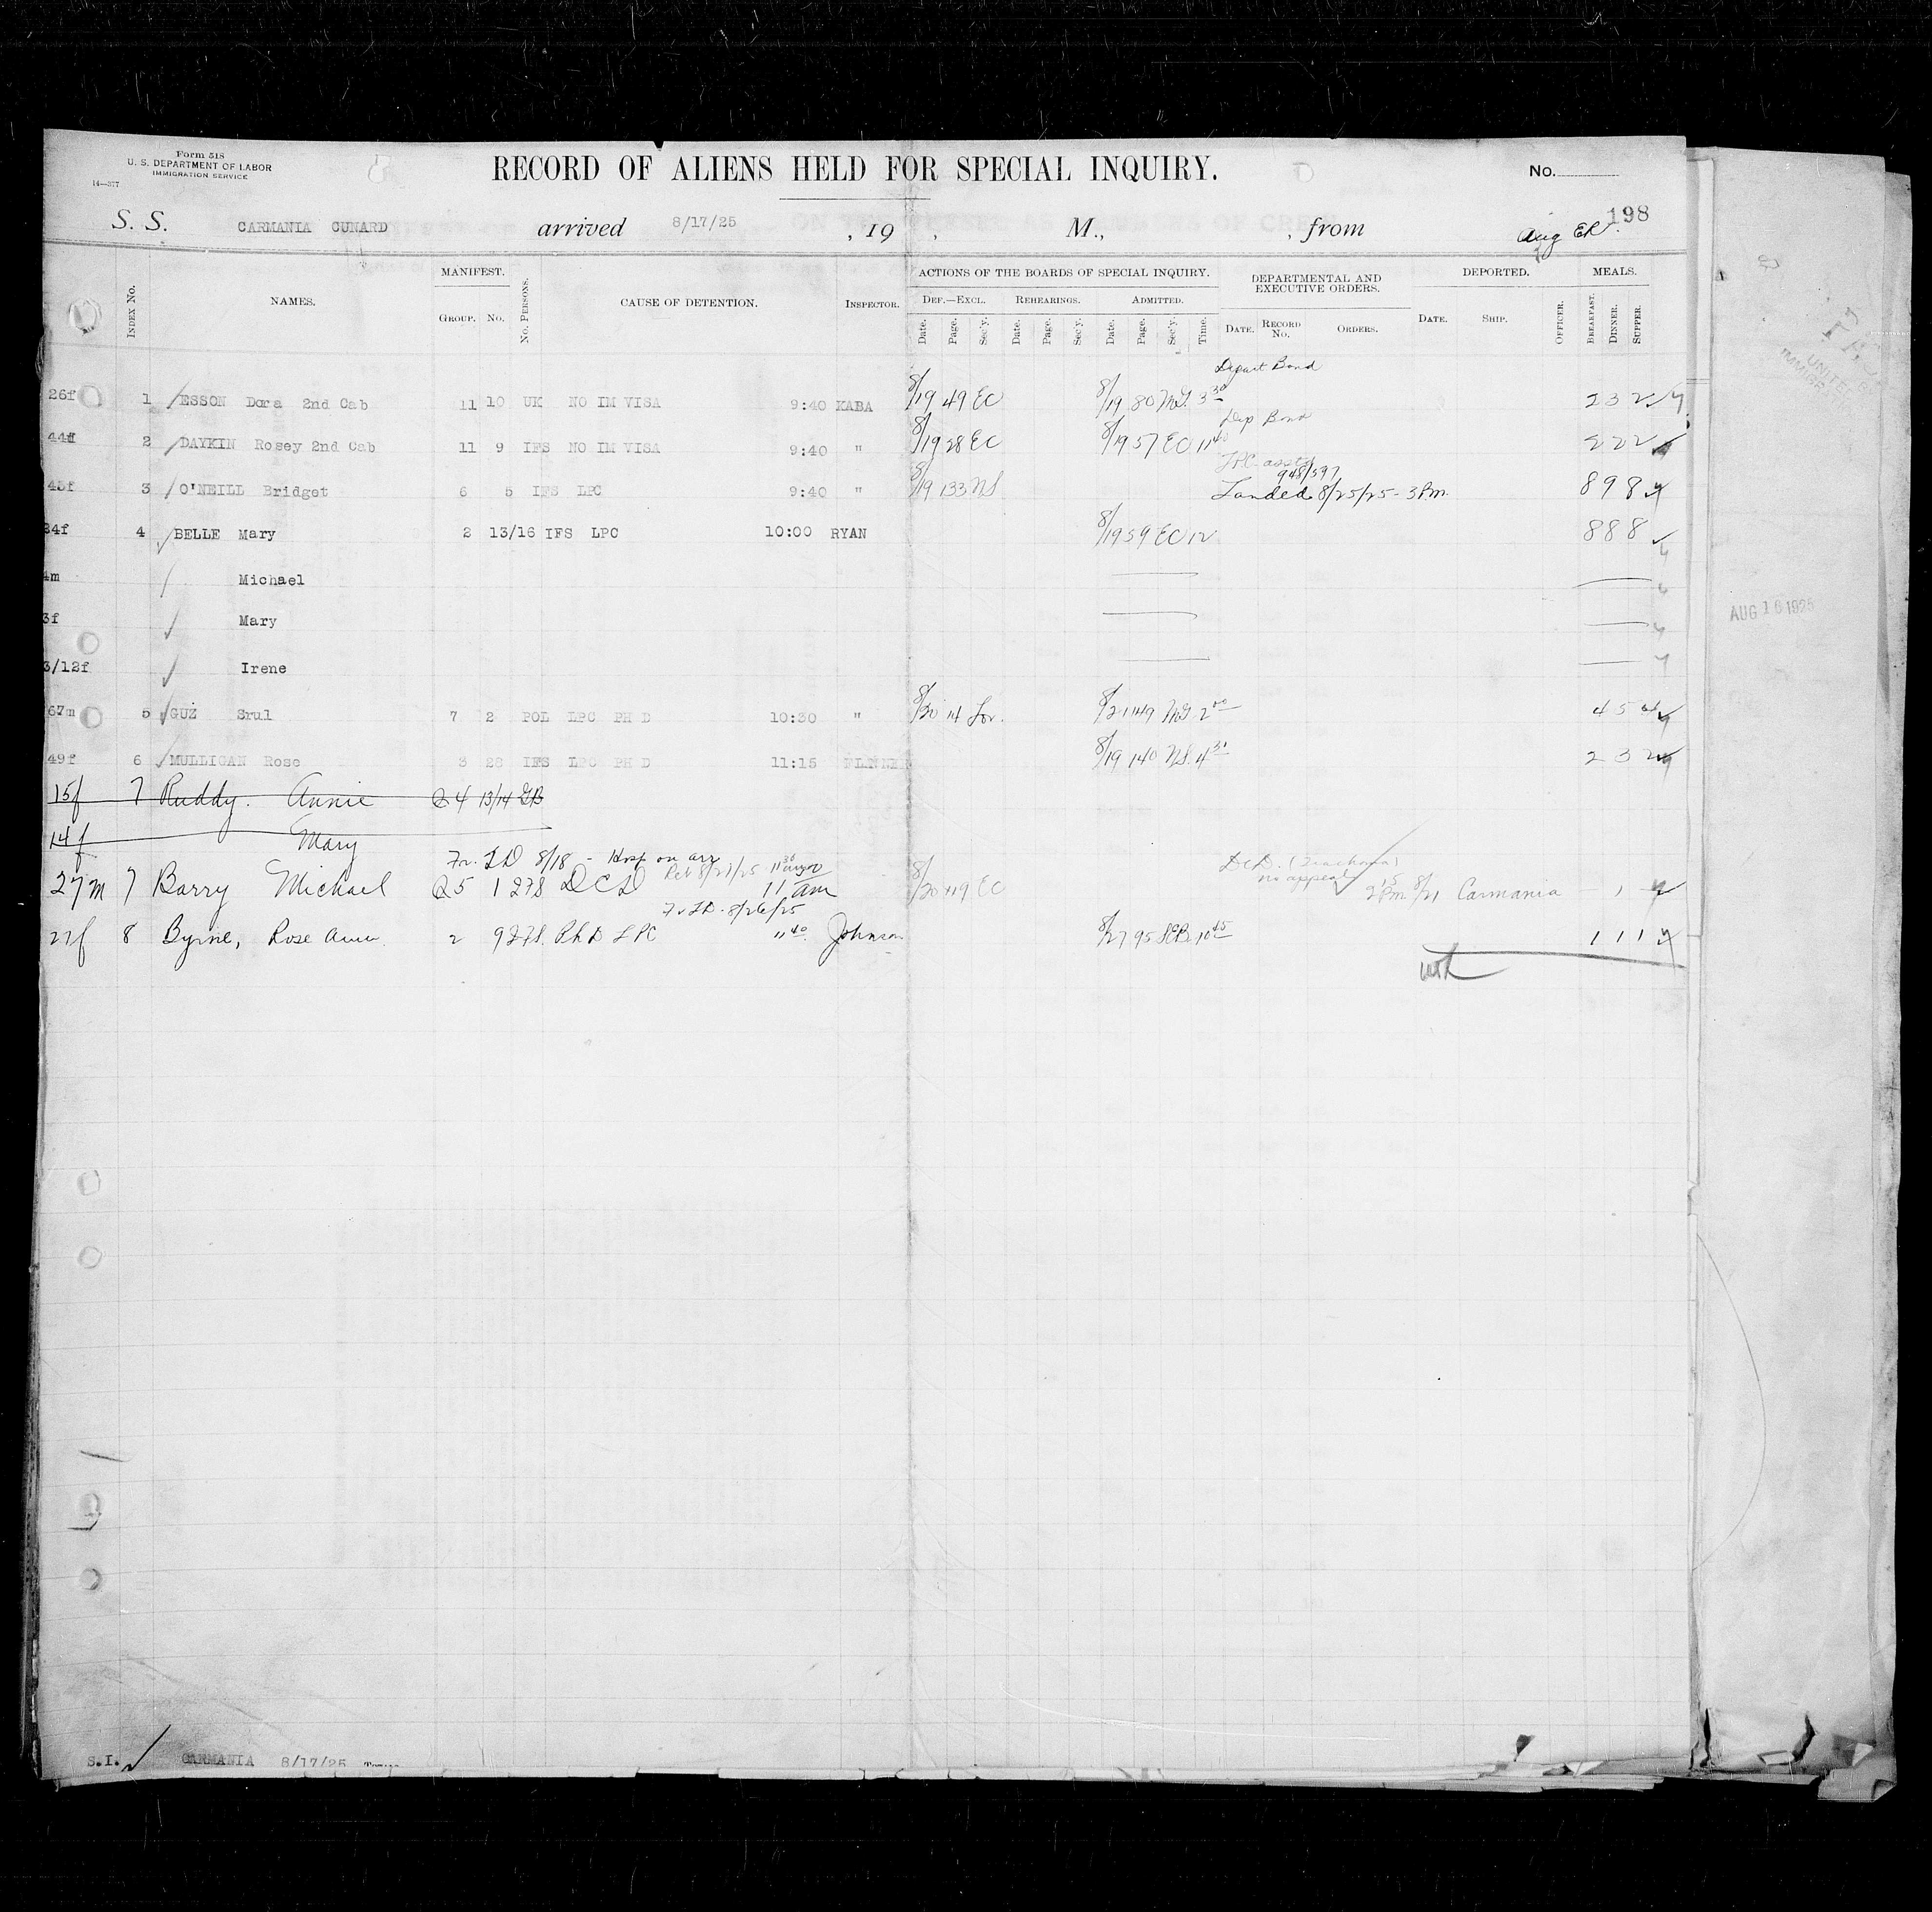 Form 518
U. S. DEPARTMENT OF LABOR
IMMIGRATION SERVICE
14—377
RECORD OF ALIENS HELD FOR SPECIAL INQUIRY.
No.
198
S. S. CARMANIA CUNARD arrived 8/17/25 , 19 , M., , from Aug
INDEX No. NAMES. MANIFEST. GROUP. No. No. PERSONS. CAUSE OF DETENTION. INSPECTOR. ACTIONS OF THE BOARDS OF SPECIAL INQUIRY. DEPARTMENTAL AND EXECUTIVE ORDERS. DEPORTED. MEALS.
DEF.—EXCL. REHEARINGS. ADMITTED.
Date. Page. Sec'y. Date. Page. Sec'y. Date. Page. Sec'y. Time. DATE. RECORD No. ORDERS. DATE. SHIP. OFFICER. BREAKFAST. DINNER. SUPPER.
Depart Bond
26f 1 ESSON Dora 2nd Cab 11 10 UK NO IM VISA 9:40 KABA 8/19 49 EC 8/19 80 3 30 2 3 2
Dep Bond
44f 2 DAYKIN Rosey 2nd Cab 11 9 IFS NO IM VISA 9:40 " 8/19 28 EC 8/19 57 EC 11 40 2 2 2
948/597
45f 3 O'NEILL Bridget 6 5 IFS LPC 9:40 " 8/19 133 NS Landed 8/25/25 - 3 P.m. 8 9 8
24f 4 BELLE Mary 2 13/16 IFS LPC 10:00 RYAN 8/19 59 EC 12 8 8 8
4m Michael
3f Mary
3/12f Irene
67m 5 GUZ Srul 7 2 POL LPC PH D 10:30 " 8/20 14 8/21 149 2 00 4 5 4
49f 6 MULLIGAN Rose 3 28 IFS LPC PH D 11:15 8/19 140 NS 4 31 2 3 2
15f 7 Ruddy. Annie 4 13/14 GB
14f Mary
Fr. TD 8/18 - Hosp on arr
D C D. (Trachoma)
no appeal
27m 7 Barry Michael 5 1 278 D C D 11 am 8/20 119 EC 2 P.m. 8/21 Carmania — 1 —
Fr TD. 8/26/25
27f 8 Byrne, Rose Ann 2 9 278. Ph D LPC 11 40 Johnson 8/27 95 10 45 1 1 1
AUG 16 1925
S.I. CARMANIA 8/17/25